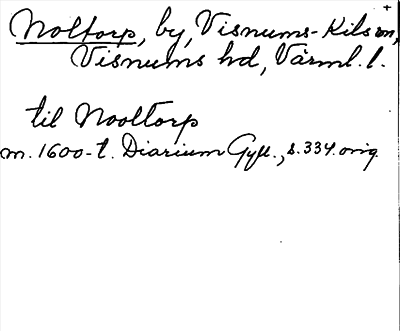 Noltorp, by, Visnums-Kils sn,
Visnums hd, Värml. l.
til Nooltorp
m. 1600-t. Diarium Gyll., s. 334. orig.